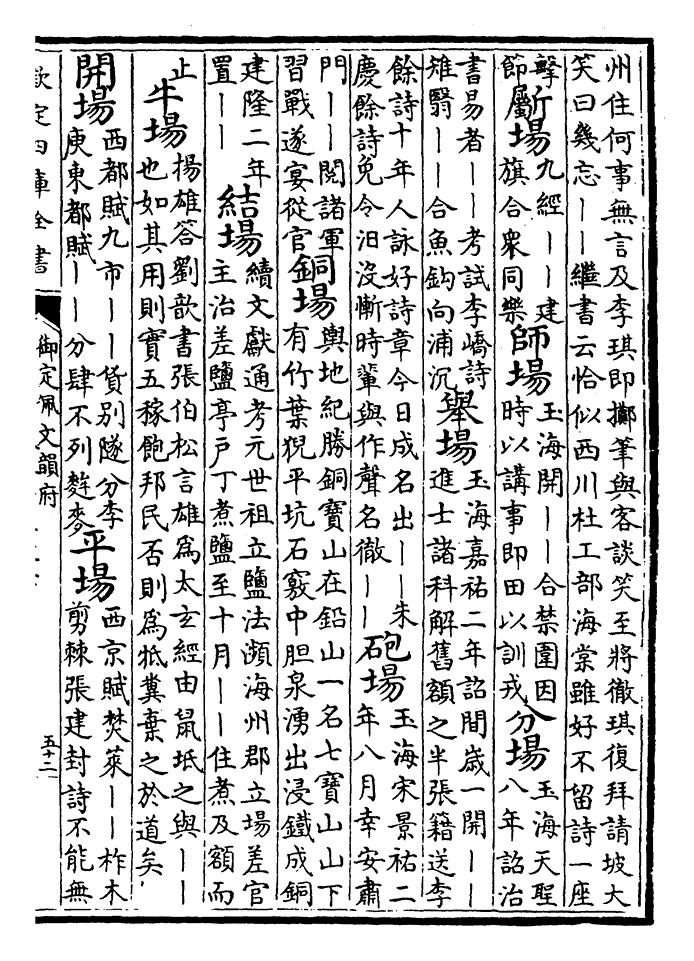 州住何事無言及李琪即擲筆與客談笑至將徹琪復拜請坡大
笑曰幾忘——繼書云恰似西川杜工部海棠雖好不留詩一座
擊
節
斷場
九經——建
旗合衆同樂
師場
玉海開——合禁圍因
時以講事即田以訓戎
分場
玉海天聖
八年詔治
書易者——考試李嶠詩
雉翳——合魚鈎向浦沉
舉場
玉海嘉祐二年詔間歲一開——
進士諸科解舊額之半張籍送李
餘詩十年人詠好詩章今日成名出——朱
慶餘詩免令汩没慚時輩與作聲名徹——
砲場
玉海宋景祐二
年八月幸安肅
門——閱諸軍
習戰遂宴從官
銅場
輿地紀勝銅寶山在鉛山一名七寶山山下
有竹葉猊平坑石竅中胆泉湧出浸鐵成銅
建隆二年
置——
結場
續文獻通考元世祖立鹽法瀕海州郡立場差官
主治差鹽亭戶丁煮鹽至十月——住煮及額而
止
牛場
揚雄答劉歆書張伯松言雄爲太玄經由鼠坻之與——
也如其用則實五稼飽邦民否則爲牴糞棄之於道矣
開場
西都賦九市——貨别隧分李
庚東都賦——分肆不列麰麥
平場
西京賦焚萊——柞木
剪棘張建封詩不能無
欽定四庫全書
御定佩文韻府
五十二